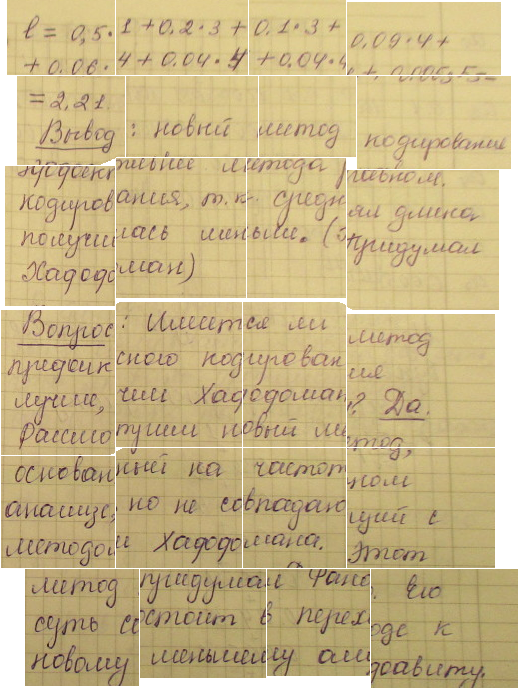 l = 0,5·1+0,2·3+0,1·3+0,09·4+
+0,06·4+0,04·4+0,04·4+0,005·5=
=2,21.
Вывод: новый метод кодирования
эффективнее метода равном.
кодирования, т.к. средняя длина
получилась меньше. (Придумал
Хаффман)
Вопрос: Имеется ли метод
префиксного кодирования
лучше, чем Хаффман? Да.
Рассмотрим новый метод,
основанный на частотном
анализе, но не совпадающий с
методом Хаффмана. Этот
метод придумал Фано. Его
суть состоит в переходе к
новому меньшему алфавиту.